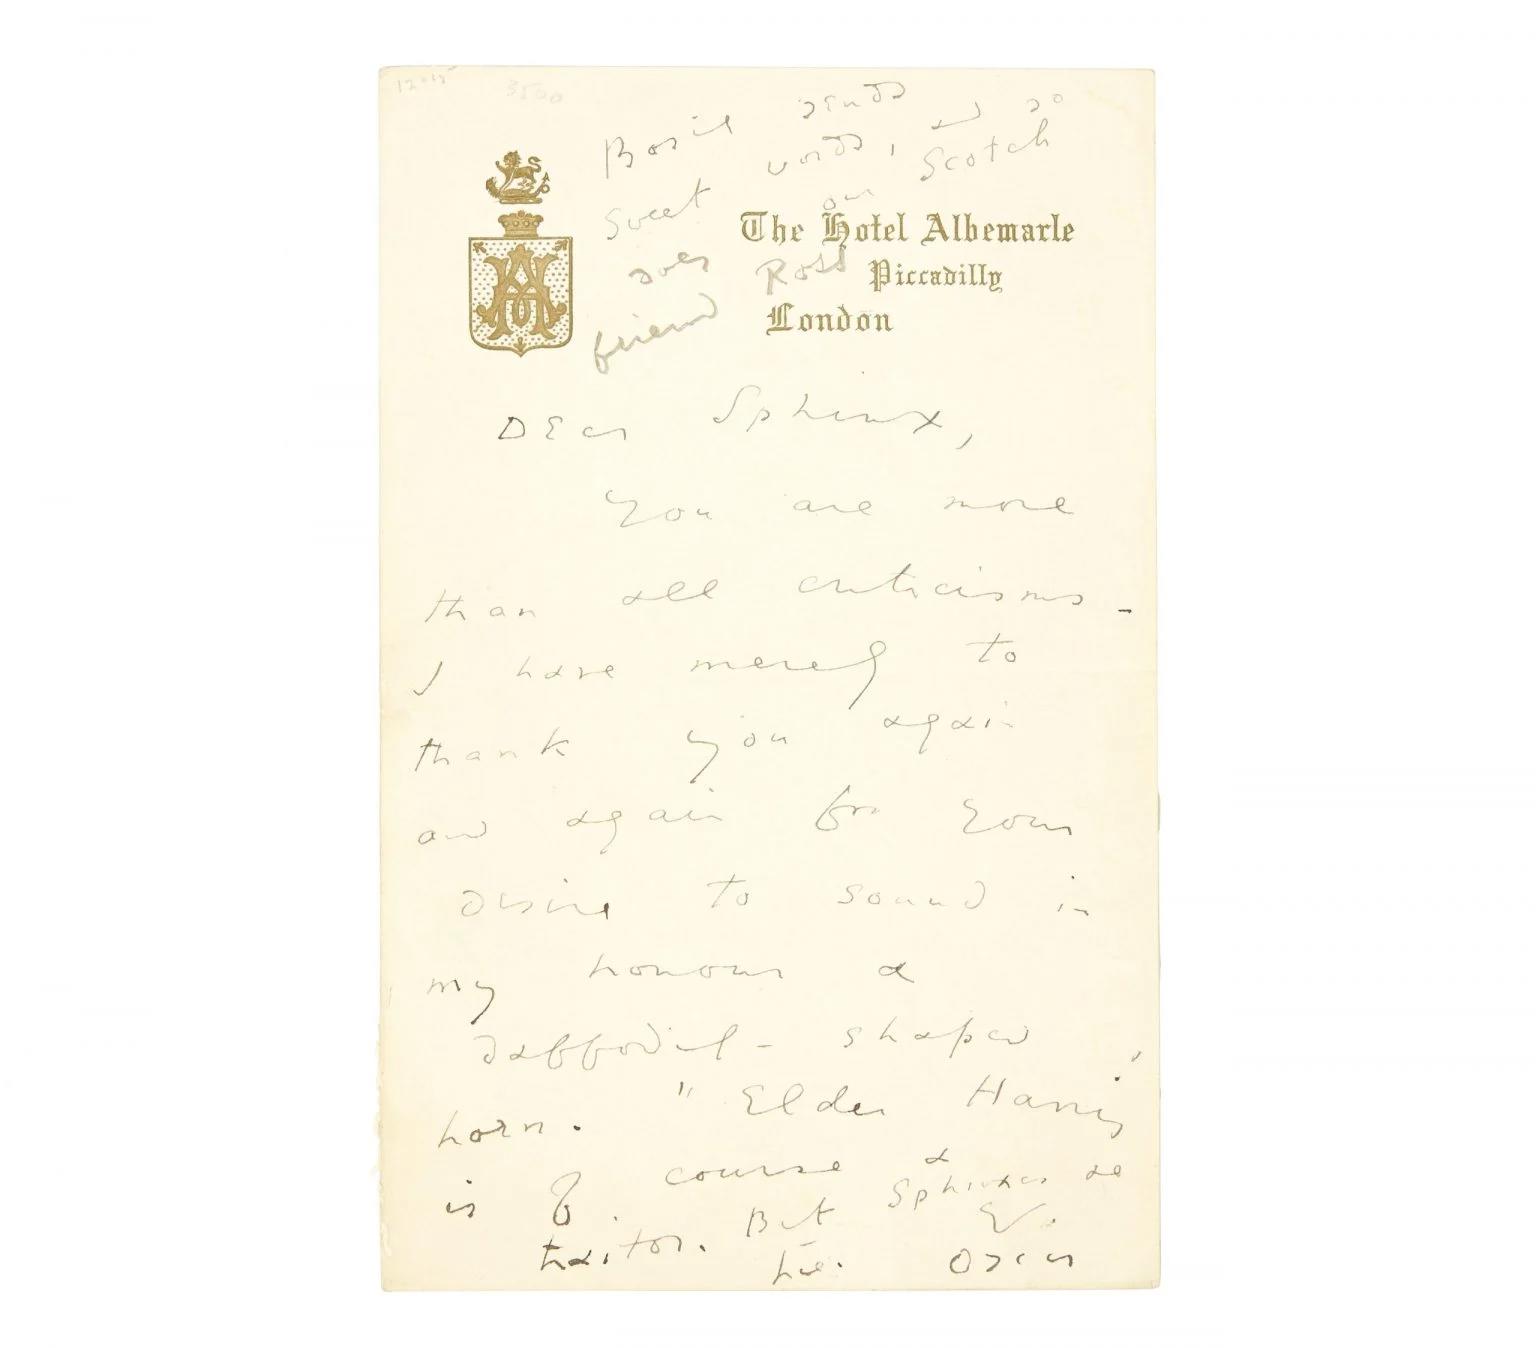 12015
3500
Bosie sends
sweet words, and so
does our Scotch
friend Ross
The Hotel Albemarle
Piccadilly
London
Dear Sphinx,
You are more
than all criticisms -
I have merely to
thank you again
and again for your
desire to sound in
my honour a
daffodil - shaped
horn. "Elder Harris"
is of course a
traitor. But Sphinxes are
true. Ev.
Oscar